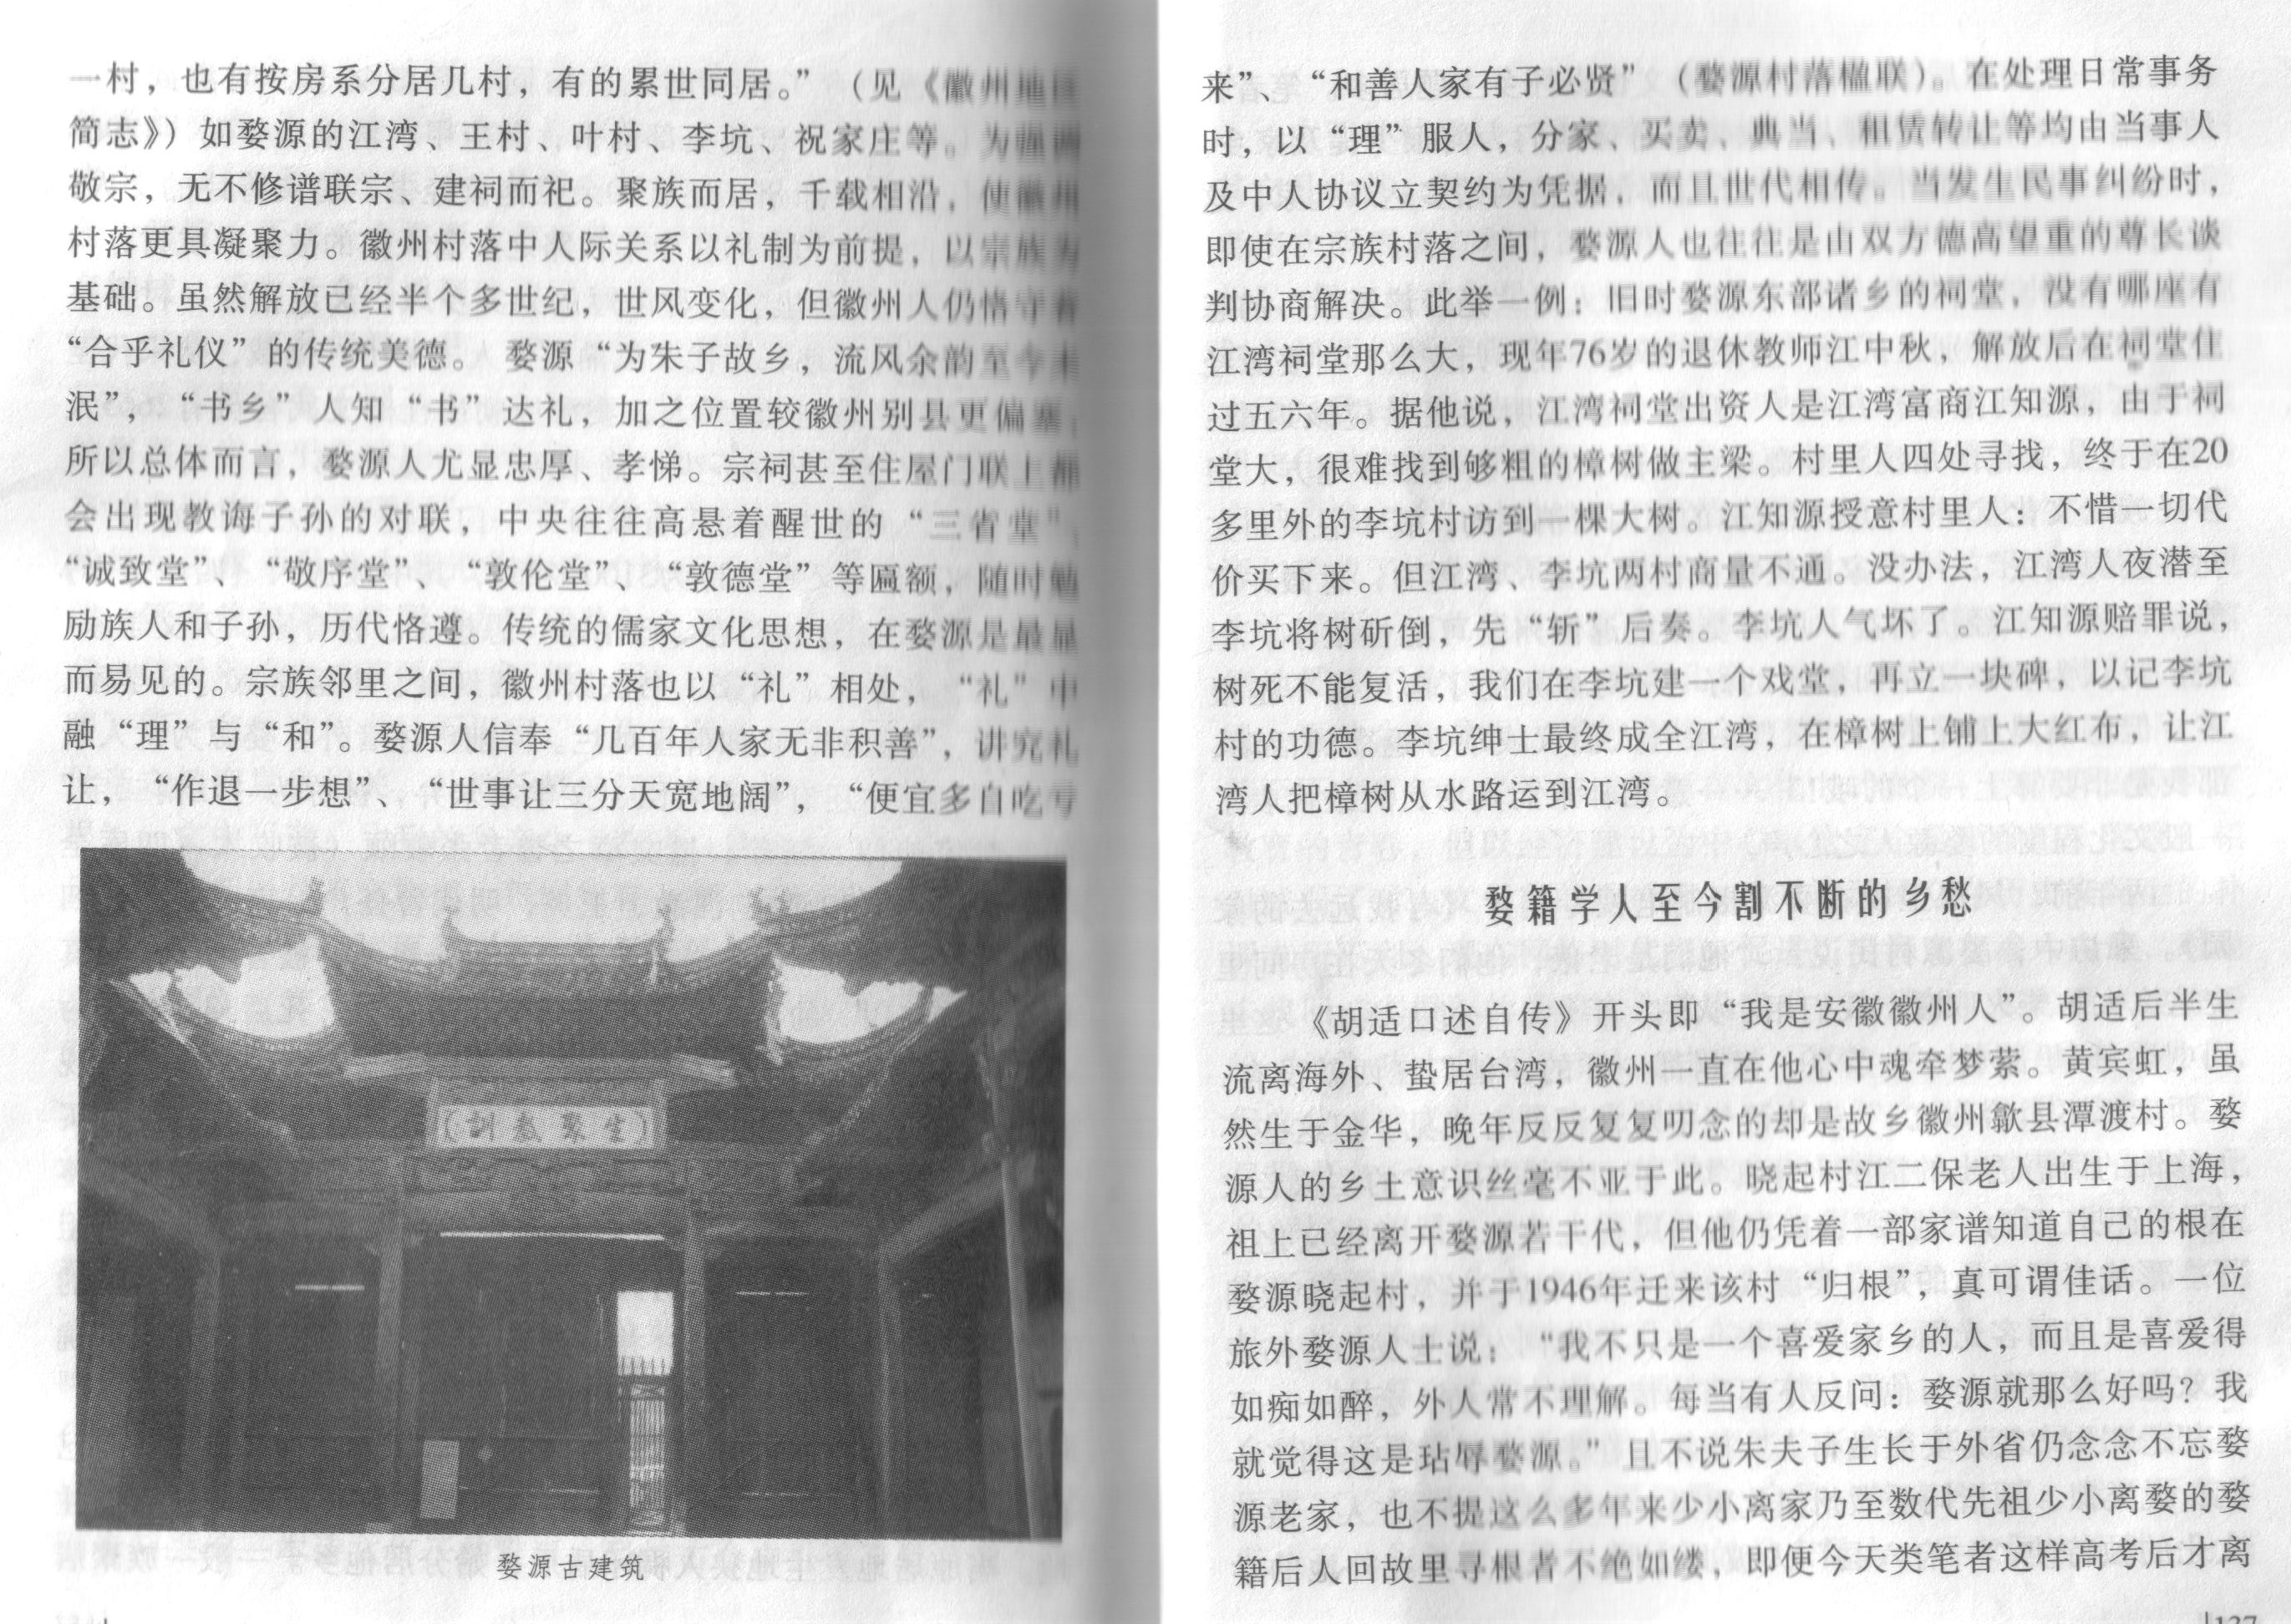 一村，也有按房系分居几村，有的累世同居。”（见《徽州地区
简志》）如婺源的江湾、王村、叶村、李坑、祝家庄等。为强调
敬宗，无不修谱联宗、建祠而祀。聚族而居，千载相沿，使徽州
村落更具凝聚力。徽州村落中人际关系以礼制为前提，以宗族为
基础。虽然解放已经半个多世纪，世风变化，但徽州人仍恪守着
“合乎礼仪”的传统美德。 婺源“为朱子故乡，流风余韵至今未
泯”，“书乡”人知“书”达礼，加之位置较徽州别县更偏塞，
所以总体而言，婺源人尤显忠厚、孝悌。宗祠甚至住屋门联上都
会出现教诲子孙的对联，中央往往高悬着醒世的“三省堂”、
“诚致堂”、“敬序堂”、“敦伦堂”、“敦德堂”等匾额，随时勉
励族人和子孙，历代恪遵。传统的儒家文化思想，在婺源是最显
而易见的。宗族邻里之间，徽州村落也以“礼”相处，“礼”中
融“理”与“和”。婺源人信奉“几百年人家无非积善”，讲究礼
让，“作退一步想”、“世事让三分天宽地阔”，“便宜多自吃亏
訓教聚生
婺源古建筑
来”、“和善人家有子必贤”（婺源村落楹联）。在处理日常事务
时，以“理”服人，分家、买卖、典当、租赁转让等均由当事人
及中人协议立契约为凭据，而且世代相传。当发生民事纠纷时，
即使在宗族村落之间，婺源人也往往是由双方德高望重的尊长谈
判协商解决。此举一例：旧时婺源东部诸乡的祠堂，没有哪座有
江湾祠堂那么大，现年76岁的退休教师江中秋，解放后在祠堂住
过五六年。据他说，江湾祠堂出资人是江湾富商江知源，由于祠
堂大，很难找到够粗的樟树做主梁。村里人四处寻找，终于在20
多里外的李坑村访到一棵大树。江知源授意村里人：不惜一切代
价买下来。但江湾、李坑两村商量不通。没办法，江湾人夜潜至
李坑将树斫倒，先“斩”后奏。李坑人气坏了。江知源赔罪说，
树死不能复活，我们在李坑建一个戏堂，再立一块碑，以记李坑
村的功德。李坑绅士最终成全江湾，在樟树上铺上大红布，让江
湾人把樟树从水路运到江湾。
婺籍学人至今割不断的乡愁
《胡适口述自传》开头即“我是安徽徽州人”。胡适后半生
流离海外、蛰居台湾，徽州一直在他心中魂牵梦萦。黄宾虹，虽
然生于金华，晚年反反复复叨念的却是故乡徽州歙县潭渡村。婺
源人的乡土意识丝毫不亚于此。晓起村江二保老人出生于上海，
祖上已经离开婺源若干代，但他仍凭着一部家谱知道自己的根在
婺源晓起村，并于1946年迁来该村“归根”，真可谓佳话。一位
旅外婺源人士说：“我不只是一个喜爱家乡的人，而且是喜爱得
如痴如醉，外人常不理解。每当有人反问：婺源就那么好吗？我
就觉得这是玷辱婺源。”且不说朱夫子生长于外省仍念念不忘婺
源老家，也不提这么多年来少小离家乃至数代先祖少小离婺的婺
籍后人回故里寻根者不绝如缕，即便今天类笔者这样高考后才离